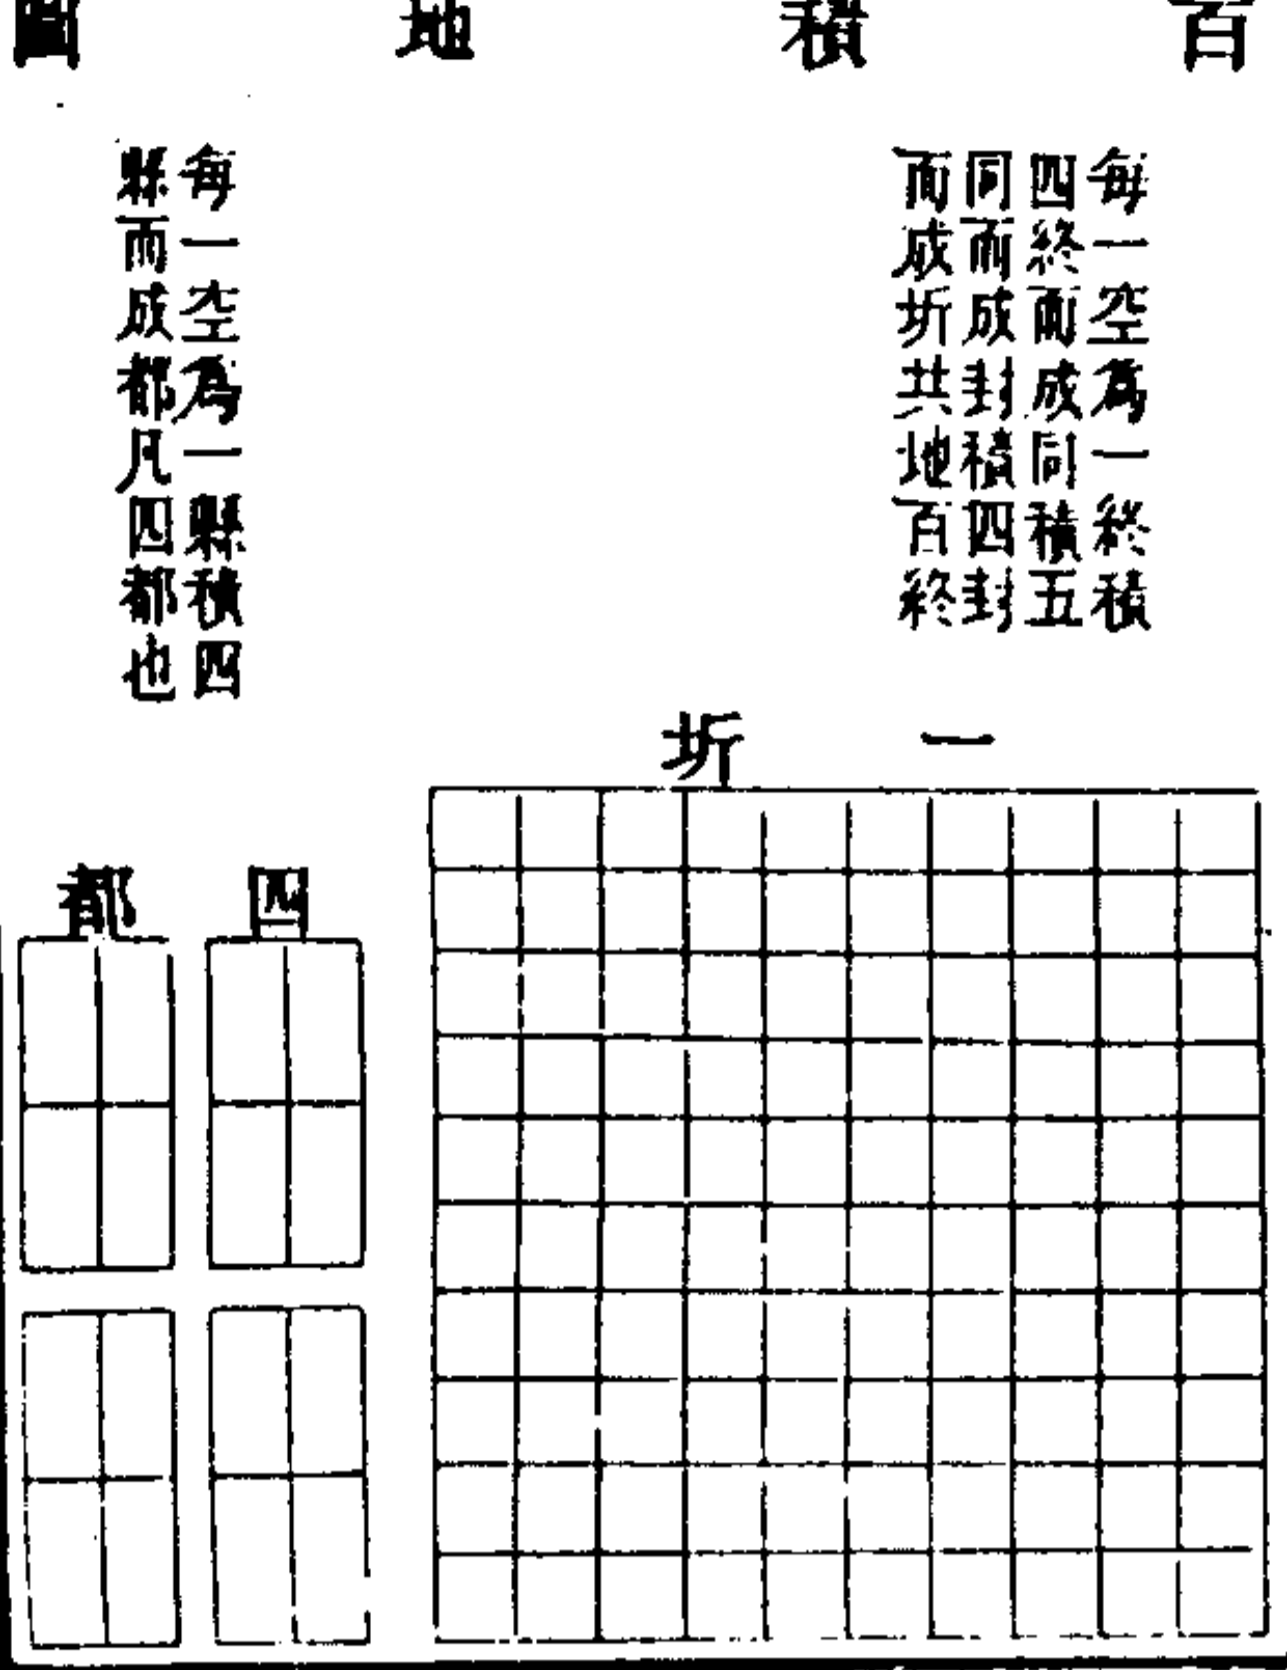 百積地圖
每一空為一終積
四終而成同積五
同而成封積四封
而成圻共地百終
每一空為一縣積四
縣而成都凡四都也
一圻
四都